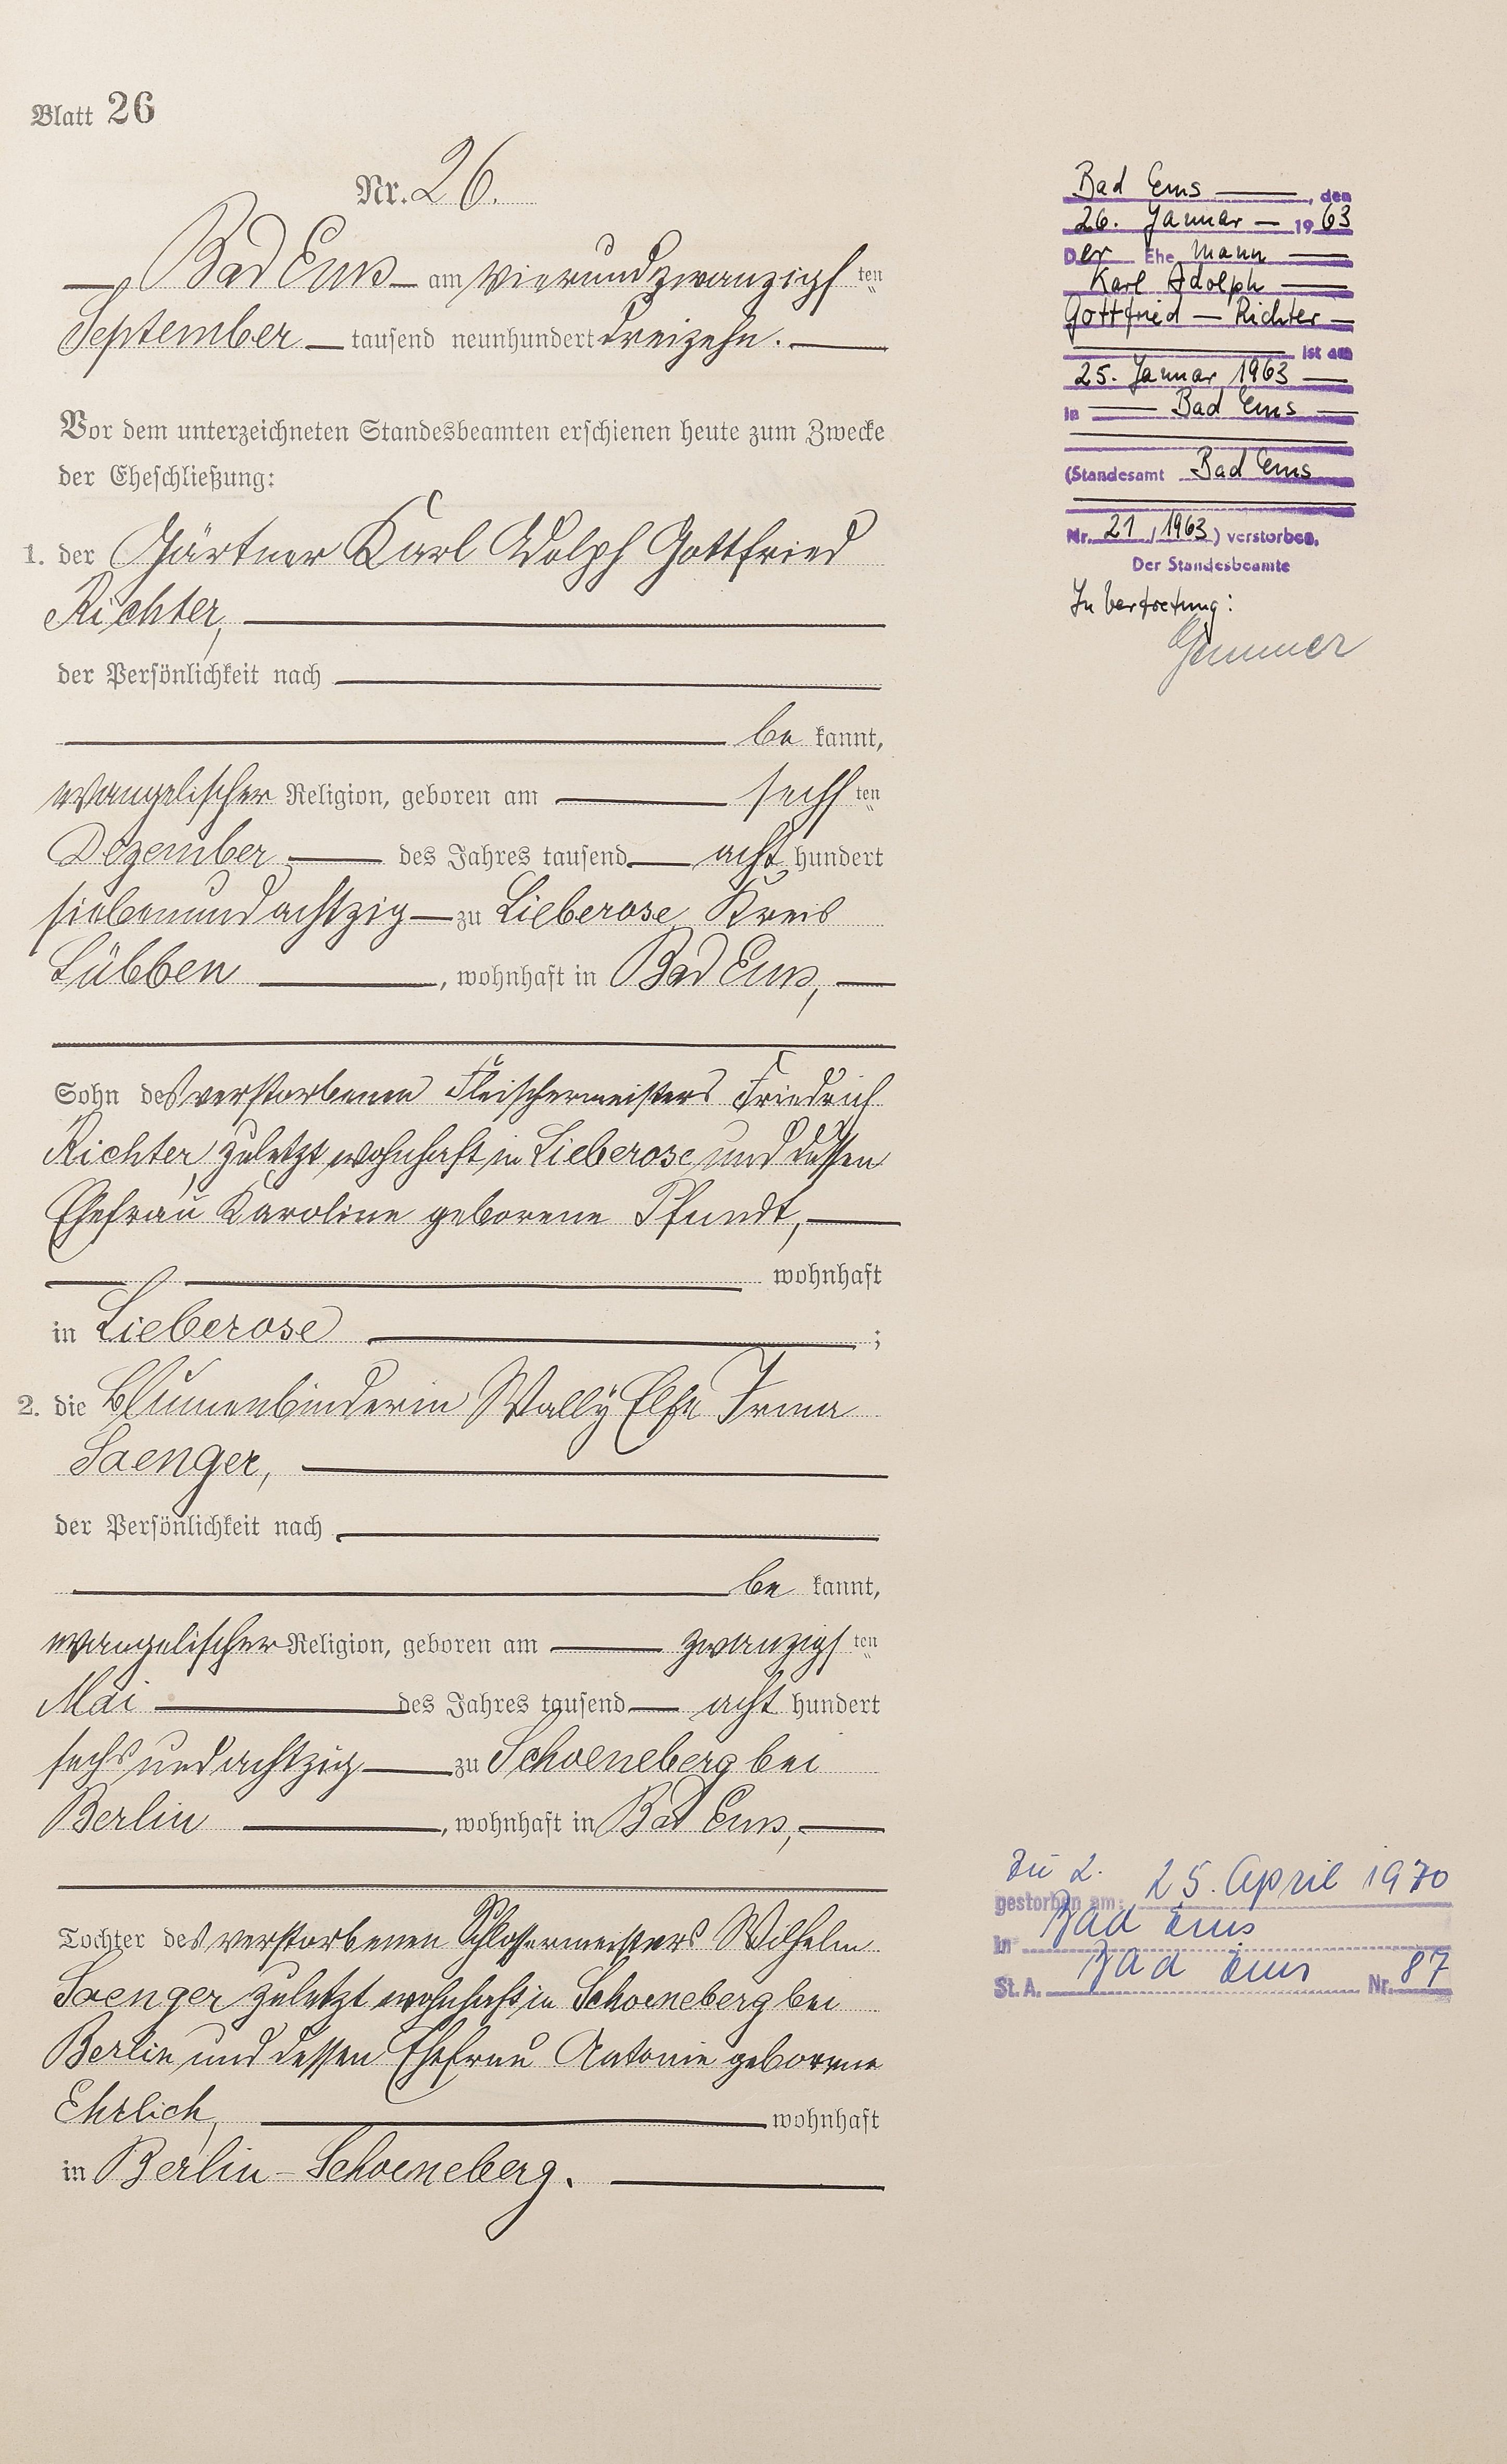 Blatt 26
Nr. 26.
Bad Ems am vierundzwanzigsten
September tausend neunhundert dreizehn.
Vor dem unterzeichneten Standesbeamten erschienen heute zum Zwecke
der Eheschließung:
1. der Gärtner Karl Adolph Gottfried
Richter,
der Persönlichkeit nach
be kannt,
evangelischer Religion, geboren am sechsten
Dezember des Jahres tausend acht hundert
siebenundachtzig zu Lieberose Kreis
Lübben, wohnhaft in Bad Ems,
Sohn des verstorbenen Fleischermeisters Friedrich
Richter, zuletzt wohnhaft in Lieberose und dessen
Ehefrau Karoline geborene Pfundt,
wohnhaft
in Lieberose ;
2. die Blumenbinderin Wally Else Irma
Saenger,
der Persönlichkeit nach
be kannt,
evangelischer Religion, geboren am zwanzigsten
Mai des Jahres tausend acht hundert
sechsundachtzig zu Schoeneberg bei
Berlin, wohnhaft in Bad Ems,
Tochter des verstorbenen Schlossermeisters Wilhelm
Saenger zuletzt wohnhaft in Schoeneberg bei
Berlin und dessen Ehefrau Antonie geborene
Ehrlich, wohnhaft
in Berlin-Schoeneberg.
Bad Ems, den
26. Januar 1963
Der Ehemann
Karl Adolph
Gottfried Richter
ist am
25. Januar 1963
in Bad Ems
(Standesamt Bad Ems
Nr. 21/1963) verstorben.
Der Standesbeamte
In Vertretung:
Zu 2.
gestorben am: 25. April 1970
in Bad Ems
St. A. Bad Ems Nr. 87